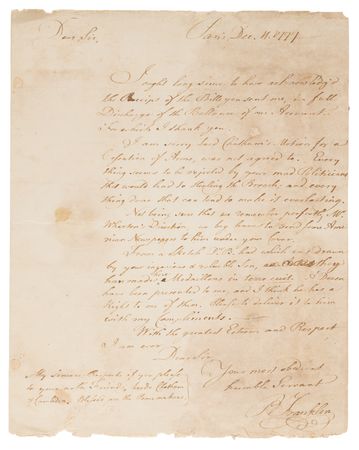 Dear Sir,
Paris, Dec. 11. 1777
I ought long since to have acknowledg'd
the Receipt of the Bill you sent me, in full
Discharge of the Ballance of our Account.
for which I thank you.
I am sorry Lord Chatham's Motion for a
Cessation of Arms, was not agreed to. Every
thing seems to be rejected by your mad Politicians
that would lead to Healing the Breach, and every
thing done that can tend to make it everlasting.
Not being sure that we remember perfectly Mr
Wharton's Direction, we beg leave to send some Ame-
rican Newspapers to him under your Cover.
From a Sketch Dr B. had which was drawn
by your ingenious & valuable Son, they
have made Medallions in terre cuit. A Dozen
have been presented to me, and I think he has a
Right to one of them. Please to deliver it to him
with my Compliments.
With the greatest Esteem and Respect
I am ever,
Dear Sir,
Your most obedient
humble Servant
B Franklin
My Sincere Respects if you please
to your noble Friend, Lords Chatham
& Camden. Blessed are the Peacemakers.